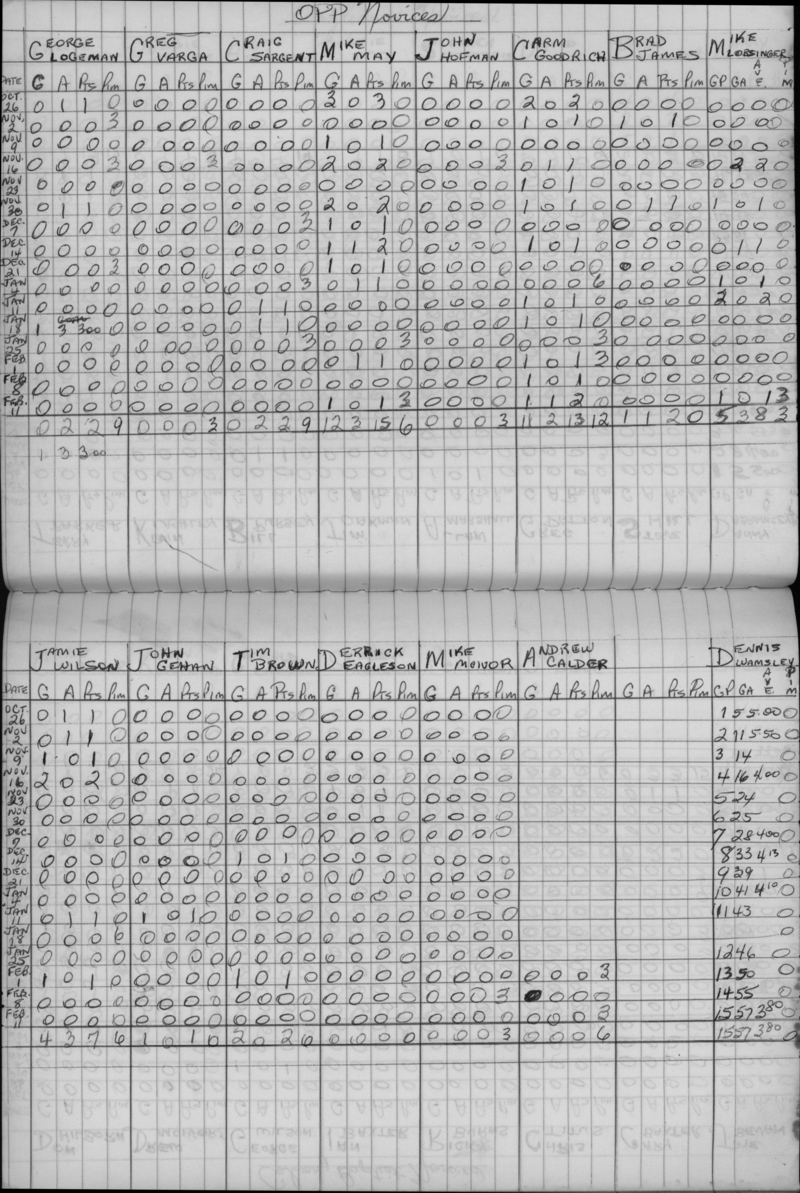 OPP Novices
GEORGE LOGEMAN GREG VARGA CRAIG SARGENT MIKE MAY JOHN HOFMAN CARM GOODRICH BRAD JAMES MIKE LOBSINGER
DATE G A Pts Pim G A Pts Pim G A Pts Pim G A Pts Pim G A Pts Pim G A Pts Pim G A Pts Pim GP GA AVE PIM
OCT. 26 0 1 1 0 0 0 0 0 0 0 0 0 2 0 3 0 0 0 0 0 2 0 2 0 0 0 0 0 0 0 0 0
NOV. 2 0 0 0 3 0 0 0 0 0 0 0 0 0 0 0 0 0 0 0 0 1 0 1 0 1 0 1 0 0 0 0 0
NOV 9 0 0 0 0 0 0 0 0 0 0 0 0 1 0 1 0 0 0 0 0 0 0 0 0 0 0 0 0 0 0 0 0
NOV. 16 0 0 0 3 0 0 0 3 0 0 0 0 2 0 2 0 0 0 0 3 0 1 1 0 0 0 0 0 0 2 2 0
NOV 23 0 0 0 0 0 0 0 0 0 0 0 0 0 0 0 0 0 0 0 0 1 0 1 0 0 0 0 0 0 0 0 0
NOV 30 0 1 1 0 0 0 0 0 0 0 0 0 2 0 2 0 0 0 0 0 1 0 1 0 0 1 1 0 1 0 1 0
DEC. 7 0 0 0 0 0 0 0 0 0 0 0 3 1 0 1 0 0 0 0 0 0 0 0 0 0 0 0 0 0 0 0 0
DEC 14 0 0 0 0 0 0 0 0 0 0 0 0 1 1 2 0 0 0 0 0 1 0 1 0 0 0 0 0 0 1 1 0
DEC. 21 0 0 0 3 0 0 0 0 0 0 0 0 1 0 1 0 0 0 0 0 0 0 0 0 0 0 0 0 0 0 0 0
JAN 4 0 0 0 0 0 0 0 0 0 0 0 3 0 1 1 0 0 0 0 0 0 0 0 6 0 0 0 0 1 0 1 0
JAN 11 0 0 0 0 0 0 0 0 0 1 1 0 0 0 0 0 0 0 0 0 1 0 1 0 0 0 0 0 2 0 2 0
JAN 18 1 3 300 0 0 0 0 0 0 1 1 0 0 0 0 0 0 0 0 0 1 0 1 0 0 0 0 0 0 0 0 0
JAN 25 0 0 0 0 0 0 0 0 0 0 0 3 0 0 0 3 0 0 0 0 0 0 0 3 0 0 0 0 0 0 0 0
FEB 1 0 0 0 0 0 0 0 0 0 0 0 0 0 1 1 0 0 0 0 0 1 0 1 3 0 0 0 0 0 0 0 0
FEB 8 0 0 0 0 0 0 0 0 0 0 0 0 0 0 0 0 0 0 0 0 1 0 1 0 0 0 0 0 0 0 0 0
FEB. 11 0 0 0 0 0 0 0 0 0 0 0 0 1 0 1 3 0 0 0 0 1 1 2 0 0 0 0 0 1 0 1 3
0 2 2 9 0 0 0 3 0 2 2 9 12 3 15 6 0 0 0 3 11 2 13 12 1 1 2 0 5 3 8 3
1 3 3.00
JAMIE WILSON JOHN GEHAN TIM BROWN DERRICK EAGLESON MIKE McIVOR ANDREW CALDER DENNIS WAMSLEY
DATE G A Pts Pim G A Pts Pim G A Pts Pim G A Pts Pim G A Pts Pim G A Pts Pim G A Pts Pim GP GA AVE PIM
OCT. 26 0 1 1 0 0 0 0 0 0 0 0 0 0 0 0 0 0 0 0 0 1 5 5.00 0
NOV. 2 0 1 1 0 0 0 0 0 0 0 0 0 0 0 0 0 0 0 0 0 2 11 5.50 0
NOV. 9 1 0 1 0 0 0 0 0 0 0 0 0 0 0 0 0 0 0 0 0 3 14 0
NOV. 16 2 0 2 0 0 0 0 0 0 0 0 0 0 0 0 0 0 0 0 0 4 16 4.00 0
NOV 23 0 0 0 0 0 0 0 0 0 0 0 0 0 0 0 0 0 0 0 0 5 24 0
NOV 30 6 25 0
DEC. 7 0 0 0 0 0 0 0 0 0 0 0 0 0 0 0 0 0 0 0 0 7 28 400 0
DEC. 14 0 0 0 0 0 0 0 0 1 0 1 0 0 0 0 0 0 0 0 0 8 33 4 13
DEC. 21 0 0 0 0 0 0 0 0 0 0 0 0 0 0 0 0 0 0 0 0 9 39 0
JAN 4 0 0 0 0 0 0 0 0 0 0 0 0 0 0 0 0 0 0 0 0 10 41 4 10 0
JAN 11 0 1 1 0 1 0 1 0 0 0 0 0 0 0 0 0 0 0 0 0 11 43
JAN 18 0 0 0 6 0 0 0 0 0 0 0 0 0 0 0 0 0 0 0 0 0
JAN 25 0 0 0 0 0 0 0 0 0 0 0 0 0 0 0 0 0 0 0 0 12 46 0
FEB 1 1 0 1 0 0 0 0 0 1 0 1 0 0 0 0 0 0 0 0 0 0 0 0 3 13 50 0
FEB. 8 0 0 0 0 0 0 0 0 0 0 0 0 0 0 0 0 0 0 0 3 0 0 0 0 14 55 0
FEB. 11 0 0 0 0 0 0 0 0 0 0 0 0 0 0 0 0 0 0 0 0 0 0 0 3 15 57 3 80 0
4 3 7 6 1 0 1 0 2 0 2 0 0 0 0 0 0 0 0 3 0 0 0 6 15 57 3 80 0